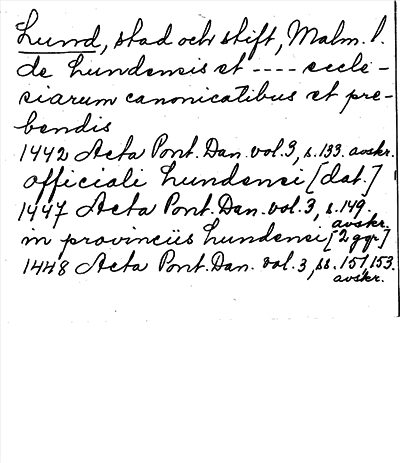 Lund, stad och stift, Malm. l.
de Lundensis et ---- eccle-
siarum canonicatibus et pre-
bendis
1442 Acta Pont. Dan. vol. 3, s. 133. avskr.
officiali Lundensi [dat.]
1447 Acta Pont. Dan. vol. 3, s. 149.
avskr.
in provinciis Lundensi [2 ggr]
1448 Acta Pont. Dan. vol. 3, ss. 151, 153.
avskr.